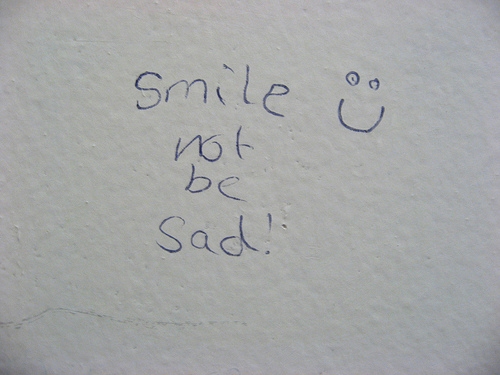 Smile
not
be
Sad!